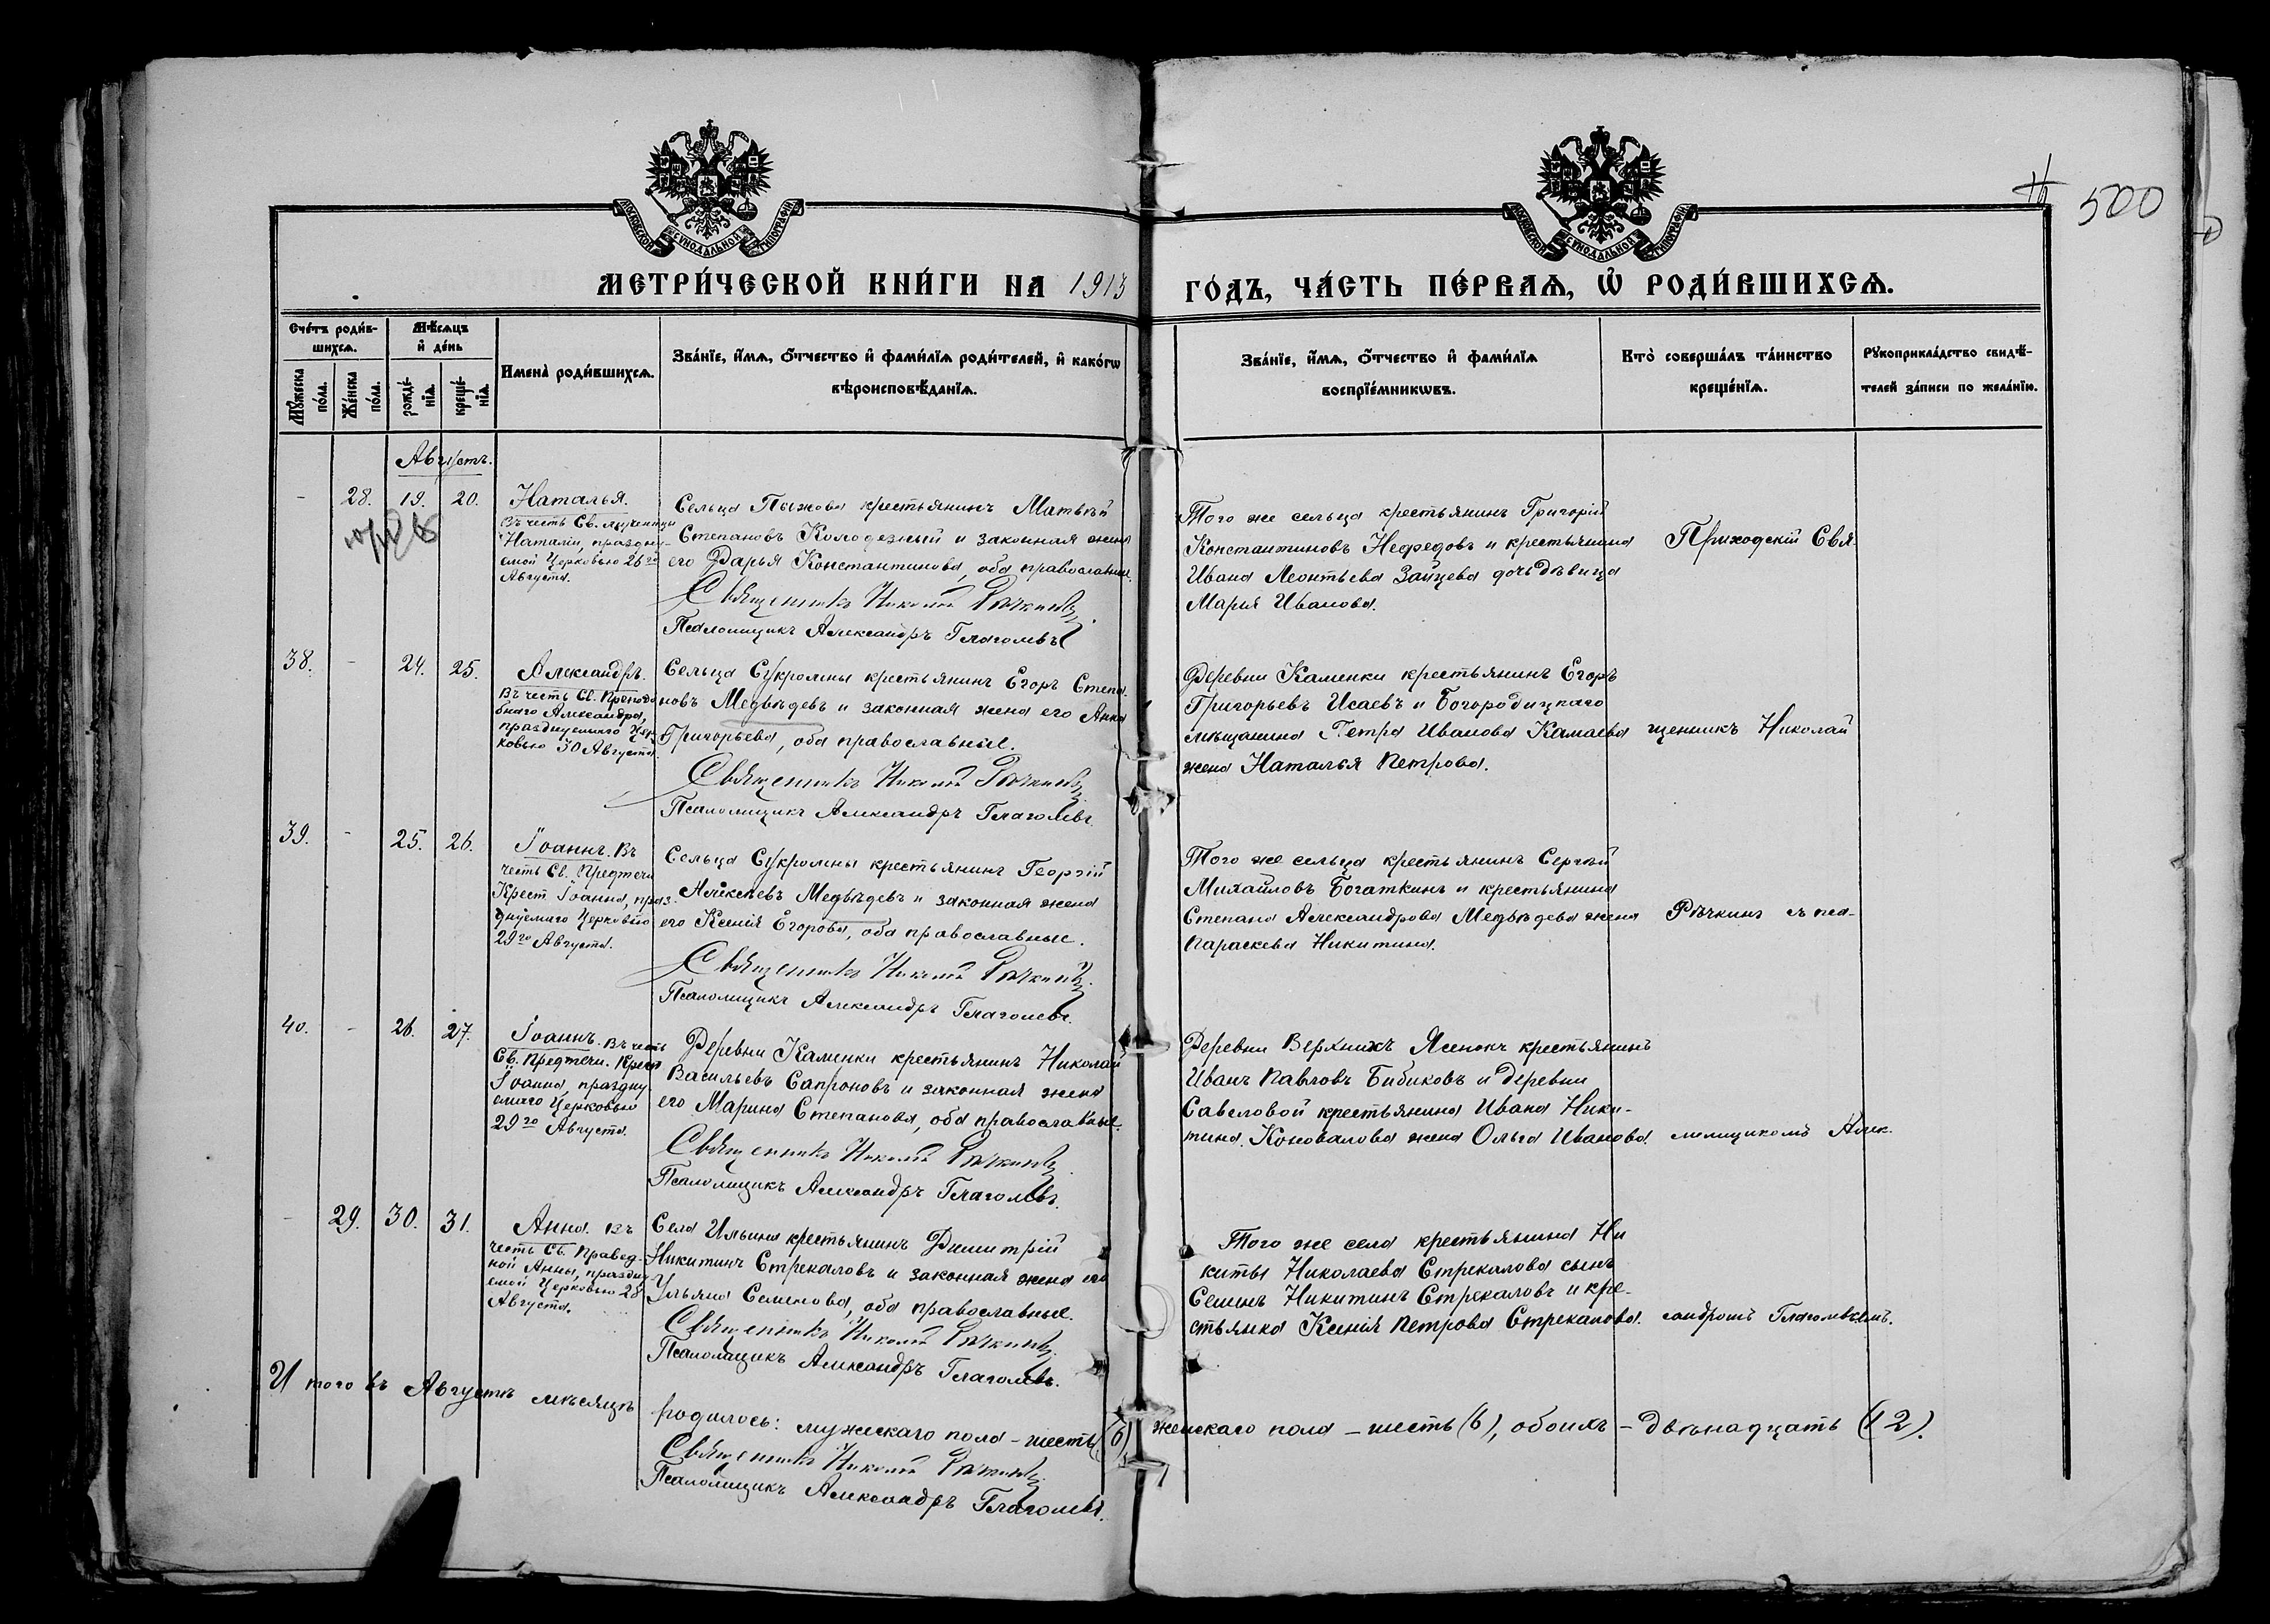 500
МОСКОВСКОЙ СѴНОДАЛЬНОЙ ТИПОГРАФІИ
МОСКОВСКОЙ СѴНОДАЛЬНОЙ ТИПОГРАФІИ
МЕТРИ́ЧЕСКОЙ КНИ́ГИ НА 1913 ГО́ДЪ, ЧА́СТЬ ПЕ́РВАѦ, Ѽ РОДИ́ВШИХСѦ.
Сче́тъ роди́в-
шихсѧ.
Мѣ́сѧцъ
и҆ де́нь
Мꙋ́жеска
по́ла.
Же́нска
по́ла.
рожде́-
нїѧ.
креще́-
нїѧ.
Имена̀ роди́вшихсѧ.
Зва́нїе, и҆́мѧ, ѻ҆́тчество и҆ фами́лїѧ роди́телей, и҆ како́гѡ
вѣроисповѣ́данїѧ.
Зва́нїе, и҆́мѧ, ѻ҆́тчество и҆ фами́лїѧ
воспрїе́мникѡвъ.
Кто̀ соверша́лъ та́инство
креще́нїѧ.
Рꙋкоприкла́дство свидѣ́-
телей за́писи по жела́нїю.
Августъ.
- 28. 19. 20.
Наталья.
Въ честь Св. мученицы
Наталіи, праздну-
емой Церковью 26го
Августа.
Сельца Пыжова крестьянинъ Матвѣй
Степановъ Колодезный и законная жена
его Дарья Константинова, оба православные.
Священникъ Николай Рѣчкинъ
Псаломщикъ Александръ Глаголевъ
Того же сельца крестьянинъ Григорій
Константиновъ Нефедовъ и крестьянина
Ивана Леонтьева Зайцева дочь дѣвица
Марія Иванова.
Приходскій Свя-
38. - 24. 25.
Александръ.
Въ честь Св. Преподо
бнаго Александра,
празднуемаго Цер
ковью 30 Августа.
Сельца Сукромны крестьянинъ Егоръ Степа-
новъ Медвѣдевъ и законная жена его Анна
Григорьева, оба православные.
Священникъ Николай Рѣчкинъ
Псаломщикъ Александръ Глаголевъ
Деревни Каменки крестьянинъ Егоръ
Григорьевъ Исаевъ и Богородицкаго
мѣщанина Петра Иванова Камаева
жена Наталья Петрова.
щенникъ Николай
39. - 25. 26.
Іоаннъ. Въ
честь Св. Предтечи
Крест Іоанна, праз-
днуемаго Церковью
29го Августа.
Сельца Сукромны крестьянинъ Георгій
Алексѣевъ Медвѣдевъ и законная жена
его Ксенія Егорова, оба православные.
Священникъ Николай Рѣчкинъ
Псаломщикъ Александръ Глаголевъ.
Того же сельца крестьянинъ Сергѣй
Михайловъ Богаткинъ и крестьянина
Степана Александрова Медвѣдева жена
Параскева Никитина.
Рѣчкинъ съ пса-
40. - 26. 27.
Іоаннъ. Въ честь
Св. Предтечи. Крест
Іоанна, праздну-
емаго Церковью
29го Августа.
Деревни Каменки крестьянинъ Николай
Васильевъ Сапроновъ и законная жена
его Марина Степанова, оба православные.
Священникъ Николай Рѣчкинъ
Псаломщикъ Александръ Глаголевъ.
Деревни Верхнихъ Ясенокъ крестьянинъ
Иванъ Павловъ Бибиковъ и деревни
Савеловой крестьянина Ивана Ники-
тина Коновалова жена Ольга Иванова.
ломщикомъ Алек-
- 29. 30. 31.
Анна. Въ
честь Св. Правед-
ной Анны, праздну-
емой Церковью 28
Августа.
Села Ильина крестьянинъ Димитрій
Никитинъ Стрекаловъ и законная жена его
Ульяна Семенова, оба православные.
Священникъ Николай Рѣчкинъ
Псаломщикъ Александръ Глаголевъ.
Того же села крестьянина Ни
киты Николаева Стрекалова сынъ
Семенъ Никитинъ Стрекаловъ и кре-
стьянка Ксенія Петрова Стрекалова.
сандромъ Глаголевымъ.
Итого въ Августѣ мѣсяцѣ родилось: мужескаго пола – шесть (6) женскаго пола – шесть (6), обоихъ – двѣнадцать (12).
Священникъ Николай Рѣчкинъ
Псаломщикъ Александръ Глаголевъ.